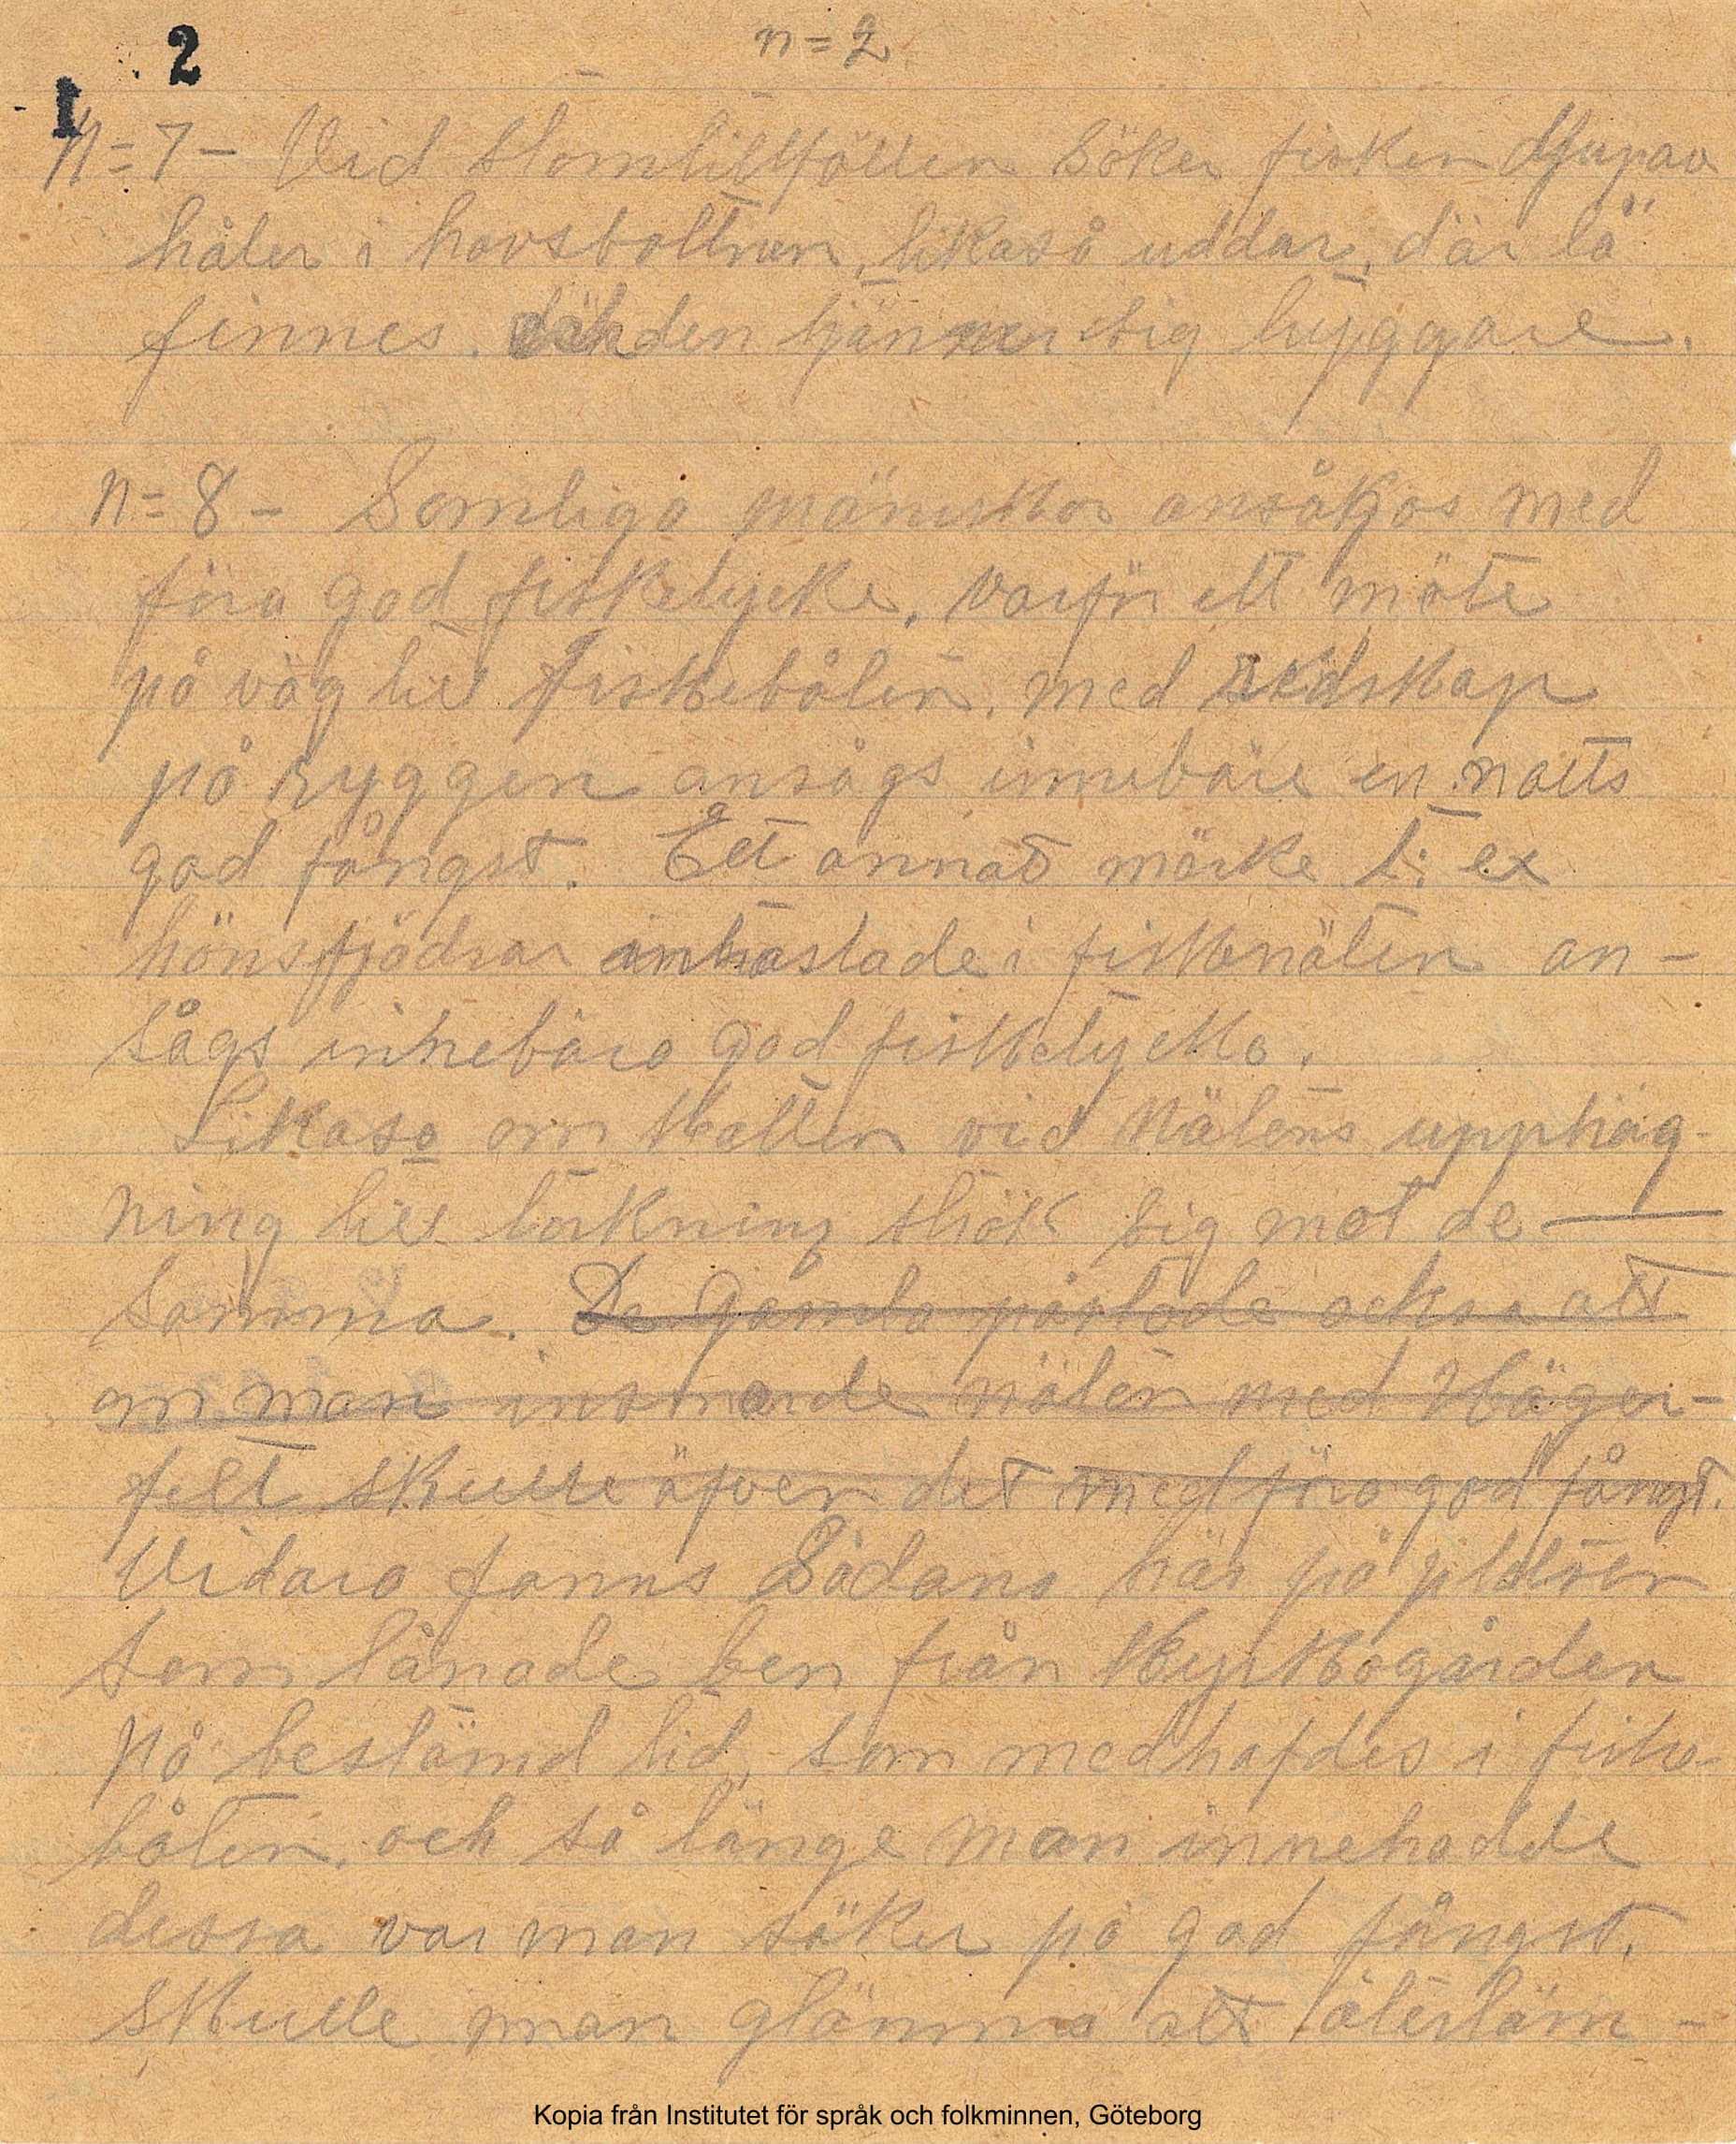 2
n=2
1
N=7- Vid stormtillfällen söker fisken djupav
håler i havsbottnen, likaså uddar, där lä
finnes. där den känner sig tryggare.
n=8- Somliga mäniskor ansågos med
föra god fiskelycke, varför ett möte
på väg till fiskebåten, med redskap
på ryggen ansågs innebära en natts
god fångst. Ett annat märke t. ex
hönsfjödrar inkastade i fiskenäten an-
sågs innebära god fiskelycka.
Likaso om Katten vid Nätens upphäg-
ning till torkning strök sig mot de-
samma. De gamla påstode också att
om man insmorde näten med Häger-
fett skulle äfven det medföra god fångst.
Vidare fanns Sådana här på platsen
som lånade ben från Kyrkogården
på bestämd tid, som medhafdes i fiske-
båten, och så länge man innehadde
dessa var man säker på god fångst.
Skulle man glömma att återläm-
Kopia från Institutet för språk och folkminnen, Göteborg